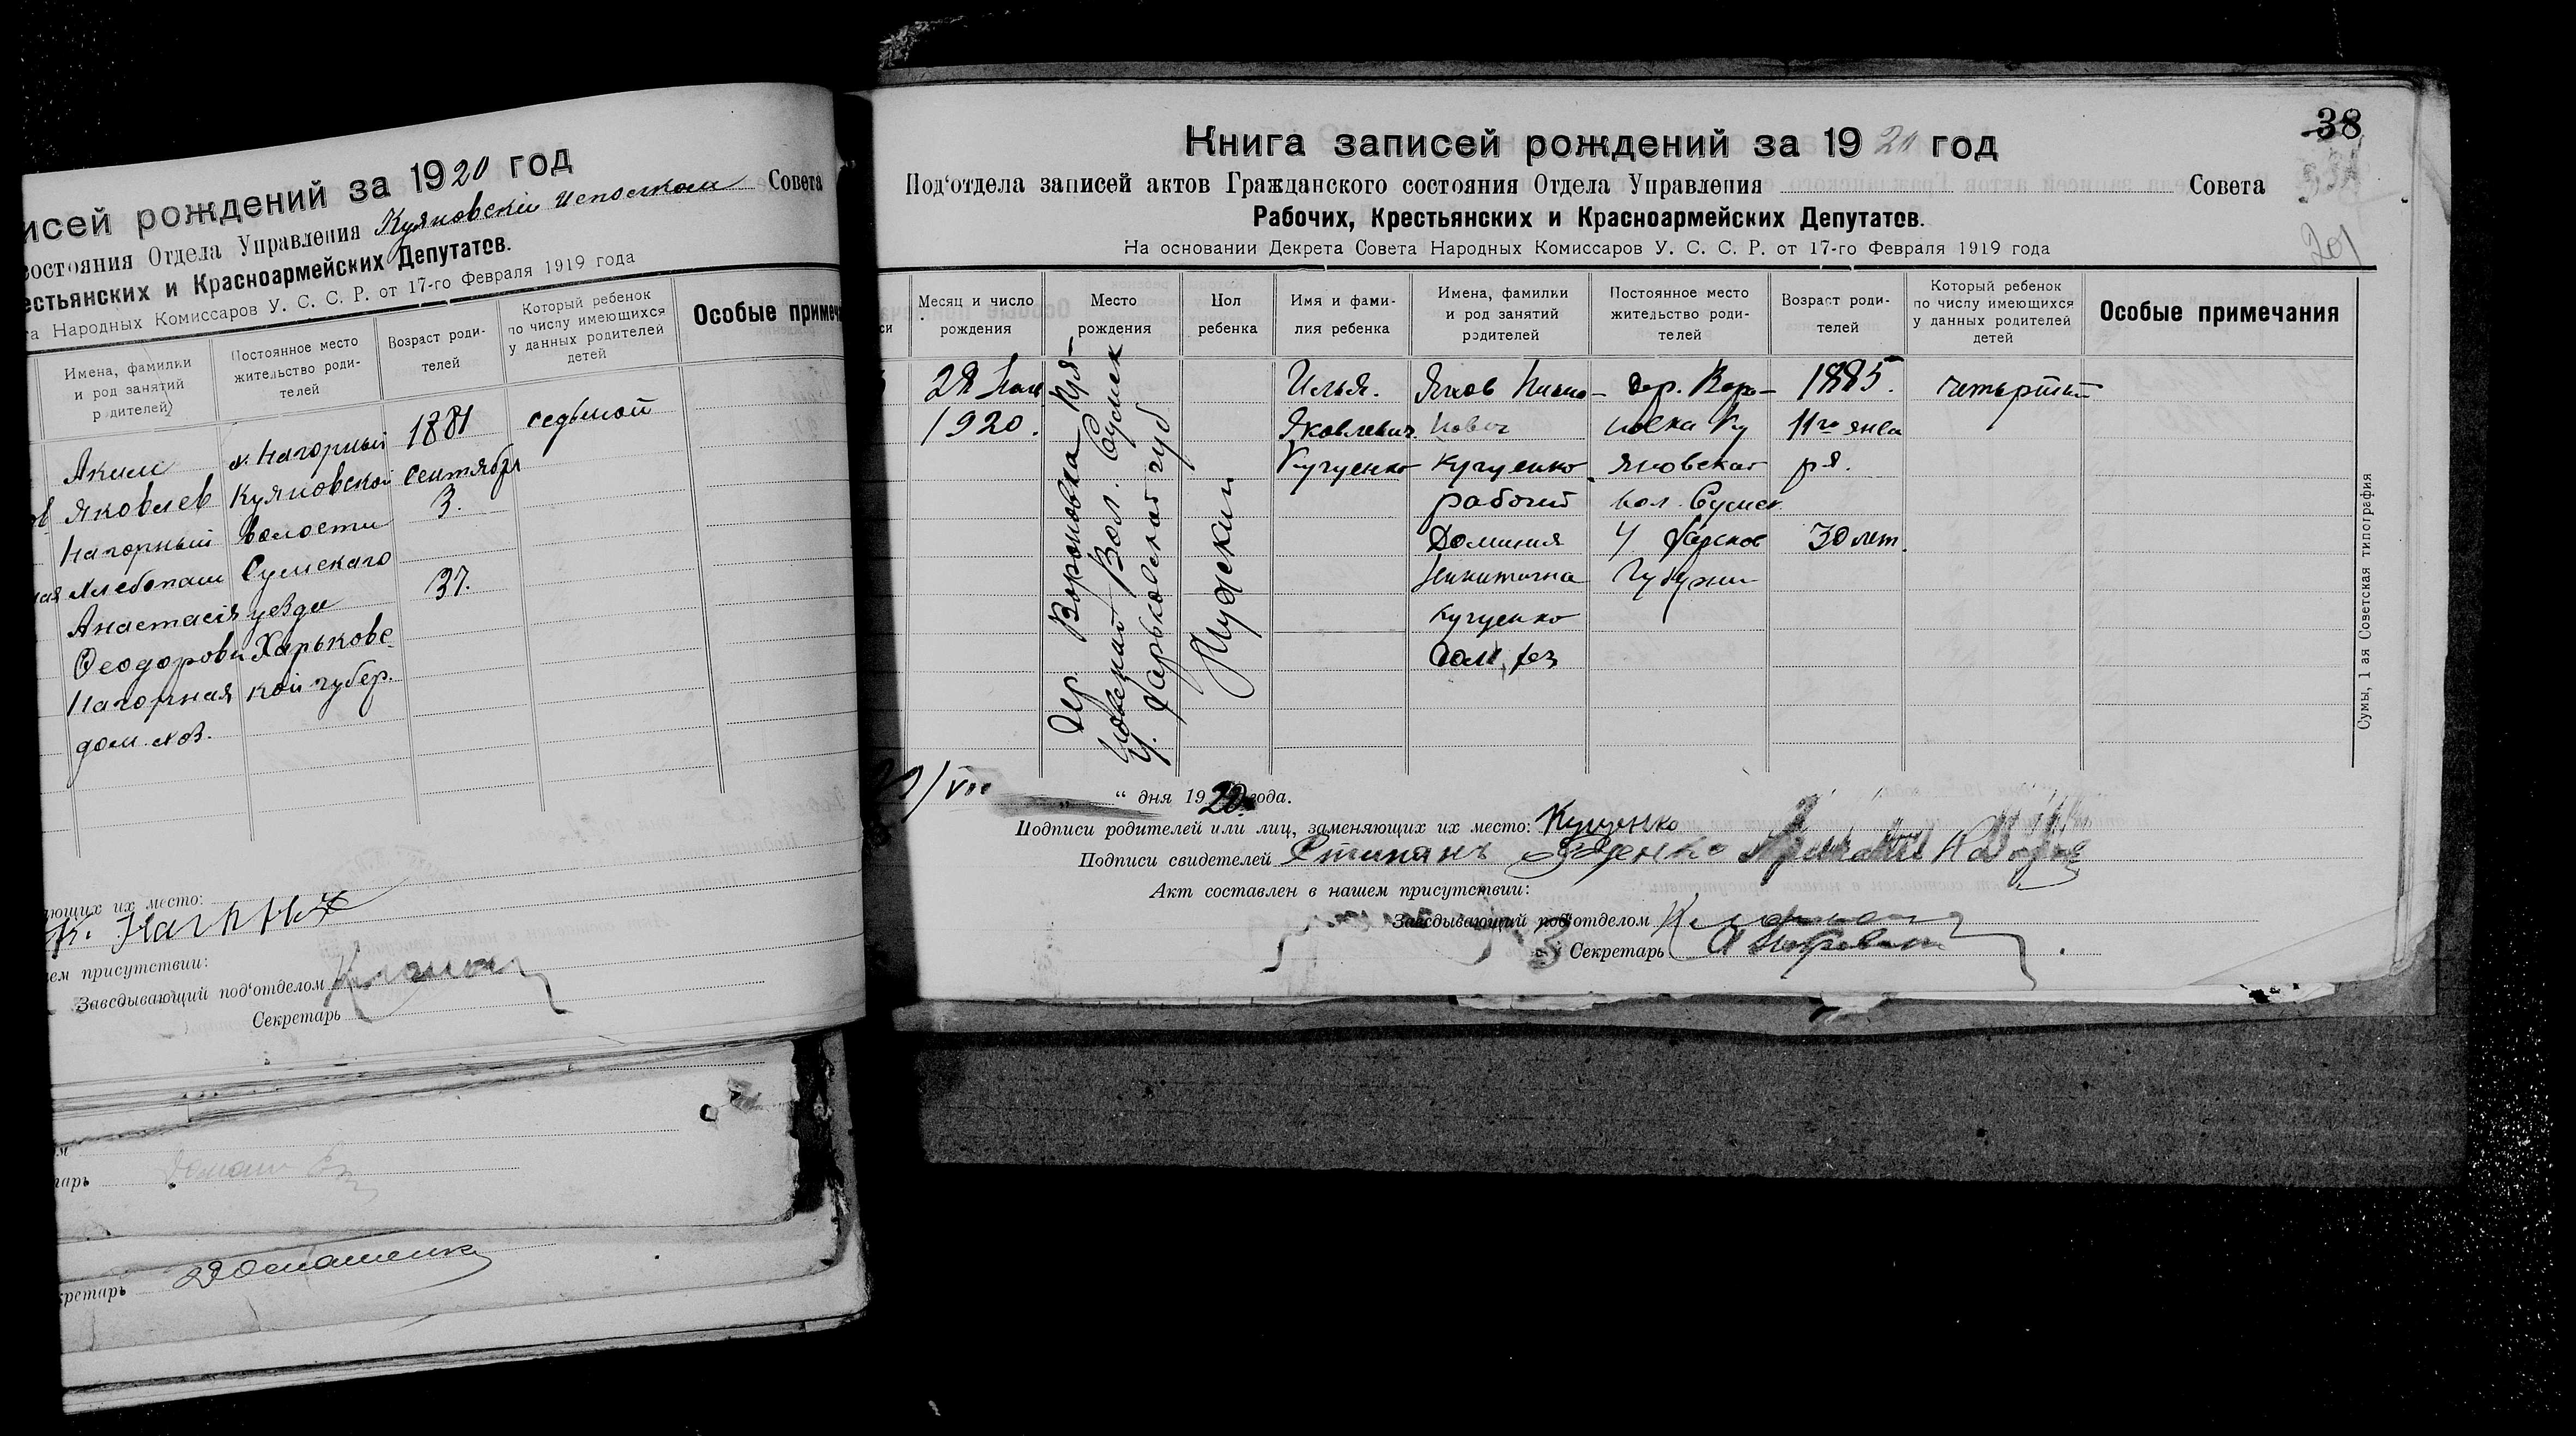 исей рождений за 1920 год
состояния Отдела Управления Куяновскій Исполком Совета
естьянских и Красноармейских Депутатов.
та Народных Комиссаров У. С. С. Р. от 17-го Февраля 1919 года
Имена, фамилии и род занятий родителей
Постоянное место жительство родителей
Возраст родителей
Который ребенок по числу имеющихся у данных родителей детей
Особые примеча
Аким х. Нагорный 1881 седьмой
ов Яковлев Куяновской сентября
Нагорный волости 3.
ная хлебопаш Сумскаго
Анастасія уезда 37.
Феодоровн Харьковс
Нагорная кой губер.
дом. хоз.
ающих их место:
ем присутствии:
Заведывающий под'отделом
Секретарь
тарь
кретарь
38
201
Книга записей рождений за 1920 год
Под'отдела записей актов Гражданского состояния Отдела Управления Совета
Рабочих, Крестьянских и Красноармейских Депутатов.
На основании Декрета Совета Народных Комиссаров У. С. С. Р. от 17-го Февраля 1919 года
Месяц и число рождения
Место рождения
Пол ребенка
Имя и фамилия ребенка
Имена, фамилии и род занятий родителей
Постоянное место жительство родителей
Возраст родителей
Который ребенок по числу имеющихся у данных родителей детей
Особые примечания
28
1920.
Дер Вороновка Куя-
новской Вол. Сумск
у. Харьковской губ
Мужский
Илья.
Яковлевич.
Кугуенко
Яков
Кугуенко
рабочий
Домния
Никитична
Кугуенко
дом. хоз
дер. Воро-
новка Ку
яновская
вол. Сумск.
у Харьков
Губернии
1885.
11го янва
ря.
30 лет.
четьвртий
/VII
“ дня 1920 года.
Подписи родителей или лиц, заменяющих их место: Кугуенко
Подписи свидетелей Степанъ
Акт составлен в нашем присутствии:
Заведывающий под'отделом
Секретарь
Сумы, 1 ая Советская типография